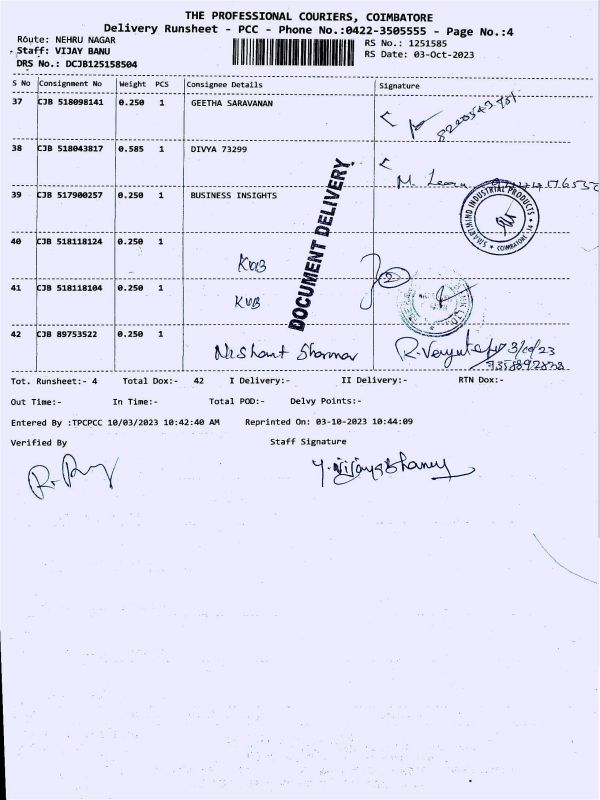 THE PROFESSIONAL COURIERS, COIMBATORE
Delivery Runsheet - PCC - Phone No.:0422-3505555 - Page No.:4
Route: NEHRU NAGAR
Staff: VIJAY BANU
DRS No.: DCJB125158504
RS No.: 1251585
RS Date: 03-Oct-2023
S No Consignment No Weight PCS Consignee Details Signature
37 CJB 518098141 0.250 1 GEETHA SARAVANAN
38 CJB 518043817 0.585 1 DIVYA 73299
M.
39 CJB 517900257 0.250 1 BUSINESS INSIGHTS
SWARTHIND INDUSTRIAL PRODUCTS
COIMBATORE
DOCUMENT DELIVERY.
40 CJB 518118124 0.250 1
KVB
2
41 CJB 518118104 0.250 1
KVB
42 CJB 89753522 0.250 1
Nishant Sharma
3/10/23
Tot. Runsheet:- 4 Total Dox:- 42 I Delivery:- II Delivery:- RTN Dox:-
Out Time:- In Time:- Total POD:- Delvy Points:-
Entered By :TPCPCC 10/03/2023 10:42:40 AM Reprinted On: 03-10-2023 10:44:09
Verified By Staff Signature